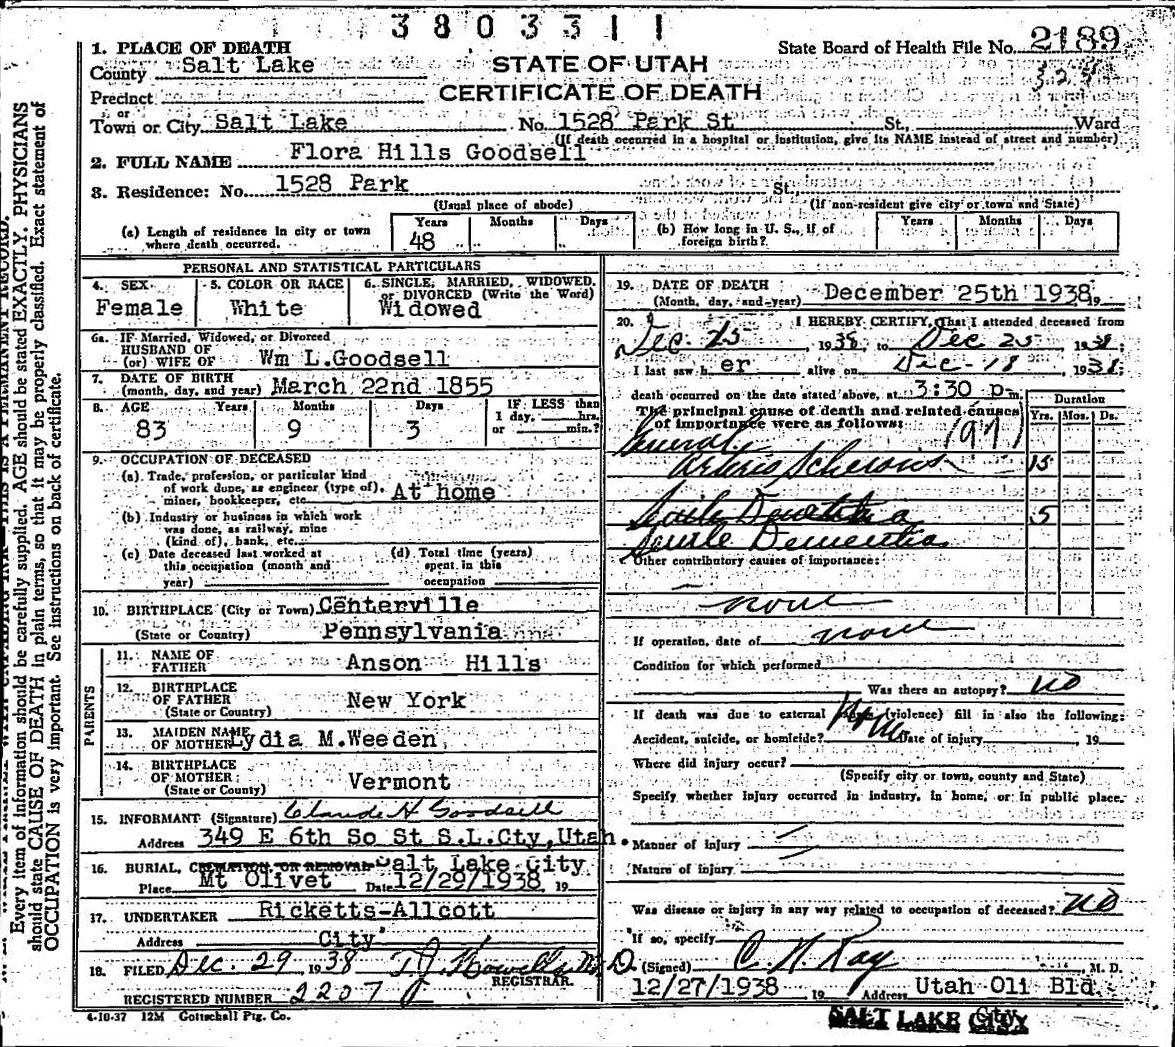 3803311
1. PLACE OF DEATH
State Board of Health File No. 2189
County Salt Lake
STATE OF UTAH
Precinct
CERTIFICATE OF DEATH
or
Town or City Salt Lake No. 1528 Park St St., Ward
(If death occurred in a hospital or institution, give its NAME instead of street and number)
2. FULL NAME Flora Hills Goodsell
3. Residence: No. 1528 Park St.
(Usual place of abode) (If non-resident give city or town and State)
(a) Length of residence in city or town where death occurred. Years 48 Months Days
(b) How long in U. S., if of foreign birth? Years Months Days
PERSONAL AND STATISTICAL PARTICULARS
4. SEX Female
5. COLOR OR RACE White
6. SINGLE, MARRIED, WIDOWED, or DIVORCED (Write the Word) Widowed
6a. IF Married, Widowed, or Divorced
HUSBAND OF
(or) WIFE OF Wm L.Goodsell
7. DATE OF BIRTH
(month, day, and year) March 22nd 1855
8. AGE Years 83 Months 9 Days 3
IF LESS than 1 day, hrs. or min.?
9. OCCUPATION OF DECEASED
(a) Trade, profession, or particular kind
of work done, as engineer (type of),
miner, bookkeeper, etc. At home
(b) Industry or business in which work
was done, as railway, mine
(kind of), bank, etc.
(c) Date deceased last worked at
this occupation (month and
year)
(d) Total time (years)
spent in this
occupation
10. BIRTHPLACE (City or Town) Centerville
(State or Country) Pennsylvania
PARENTS
11. NAME OF
FATHER Anson Hills
12. BIRTHPLACE
OF FATHER New York
(State or Country)
13. MAIDEN NAME
OF MOTHER Lydia M.Weeden
14. BIRTHPLACE
OF MOTHER Vermont
(State or Country)
15. INFORMANT (Signature) Claude H Goodsell
Address 349 E 6th So St S.L.Cty,Utah.
16. BURIAL, CREMATION OR REMOVAL Salt Lake City
Place Mt Olivet Date 12/29/1938, 19
17. UNDERTAKER Ricketts-Allcott
Address City
18. FILED Dec. 29 1938 T.J. Howells M.D.
REGISTRAR.
REGISTERED NUMBER 2207
4-10-37 12M Gottschall Ptg. Co.
19. DATE OF DEATH
(Month, day, and year) December 25th 1938 19
20. I HEREBY CERTIFY, That I attended deceased from
Dec. 25, 1938, to Dec 25, 1938;
I last saw her alive on Dec-18, 1938;
death occurred on the date stated above, at 3:30 p m.
The principal cause of death and related causes
of importance were as follows:
Duration
Yrs. Mos. Ds.
General
Arterio Sclerosis 15
Senile Dementia 5
Senile Dementia
Other contributory causes of importance:
none
If operation, date of none
Condition for which performed
Was there an autopsy? no
If death was due to external (violence) fill in also the following:
Accident, suicide, or homicide? Date of injury, 19
Where did injury occur?
(Specify city or town, county and State)
Specify whether injury occurred in industry, in home, or in public place.
Manner of injury
Nature of injury
Was disease or injury in any way related to occupation of deceased? no
If so, specify
(Signed) C. N. Ray M. D.
12/27/1938 19 Address Utah Oli Bld
SALT LAKE CITY
Every item of information should be carefully supplied. AGE should be stated EXACTLY. PHYSICIANS
should state CAUSE OF DEATH in plain terms, so that it may be properly classified. Exact statement of
OCCUPATION is very important. See instructions on back of certificate.